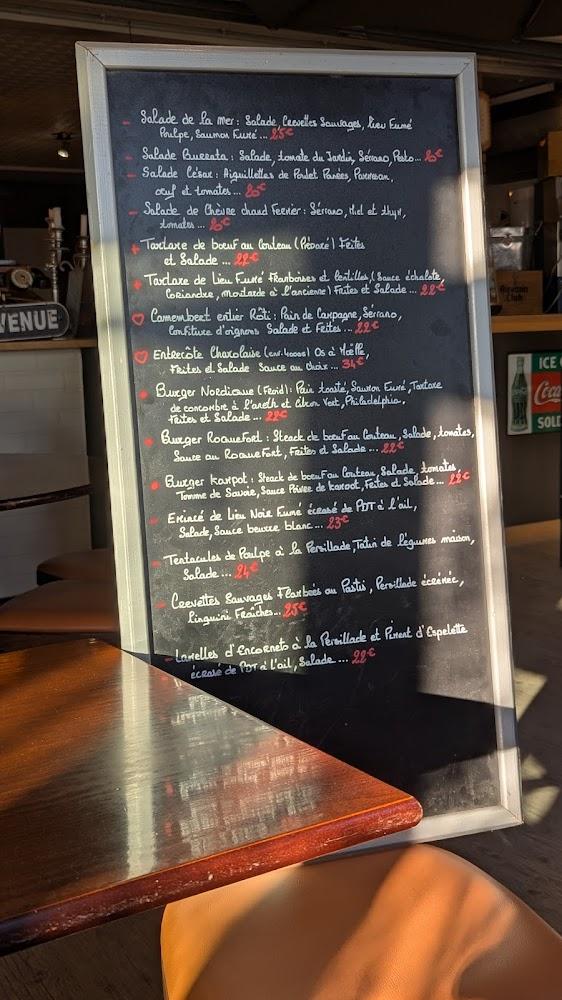 - Salade de la mer : Salade, Crevettes Sauvages, lieu Fumé
Poulpe, Saumon Fumé ... 25€
- Salade Burrata : Salade, tomate du Jardin, Sérrano, Pesto... 20€
- Salade César : Aiguillettes de Poulet Panées, Parmesan,
oeuf et tomates ... 20€
- Salade de Chèvre chaud Fermier : Sérrano, Miel et thym,
tomates ... 20€
Tartare de boeuf au Couteau (Préparé) Frites
et Salade ... 22€
Tartare de Lieu Fumé Framboises et lentilles, (Sauce échalote,
Coriandre, Moutarde à l'ancienne) Frites et Salade ... 22€
♡ Camembert entier Rôti : Pain de Campagne, Sérrano,
Confiture d'oignons Salade et Frites ... 22€
♡ Entrecôte Charolaise (env. 400grs) Os à Moëlle,
Frites et Salade Sauce au Choix ... 34€
Burger Nordique (Froid) : Pain toasté, Saumon Fumé, Tartare
de concombre à l'aneth et Citron Vert, Philadelphia,
Frites et Salade ... 22€
Burger Roquefort : Steack de boeuf au Couteau, Salade, tomates,
Sauce au Roquefort, Frites et Salade ... 22€
Burger Kampot : Steack de boeuf au Couteau, Salade, tomates,
Tomme de Savoie, Sauce Poivre de Kampot, Frites et Salade ... 22€
- Emincé de Lieu Noir Fumé écrasé de PDT à l'ail,
Salade, Sauce beurre blanc ... 23€
- Tentacules de Poulpe à la Persillade, Tatin de légumes maison,
Salade ... 24€
- Crevettes Sauvages Flambées au Pastis, Persillade écrémée,
linguini Fraîches... 25€
- Lamelles d'Encornets à la Persillade et Piment d'Espelette
écrasé de PDT à l'ail, Salade ... 22€
VENUE
Club
ICE
Coca
SOLD